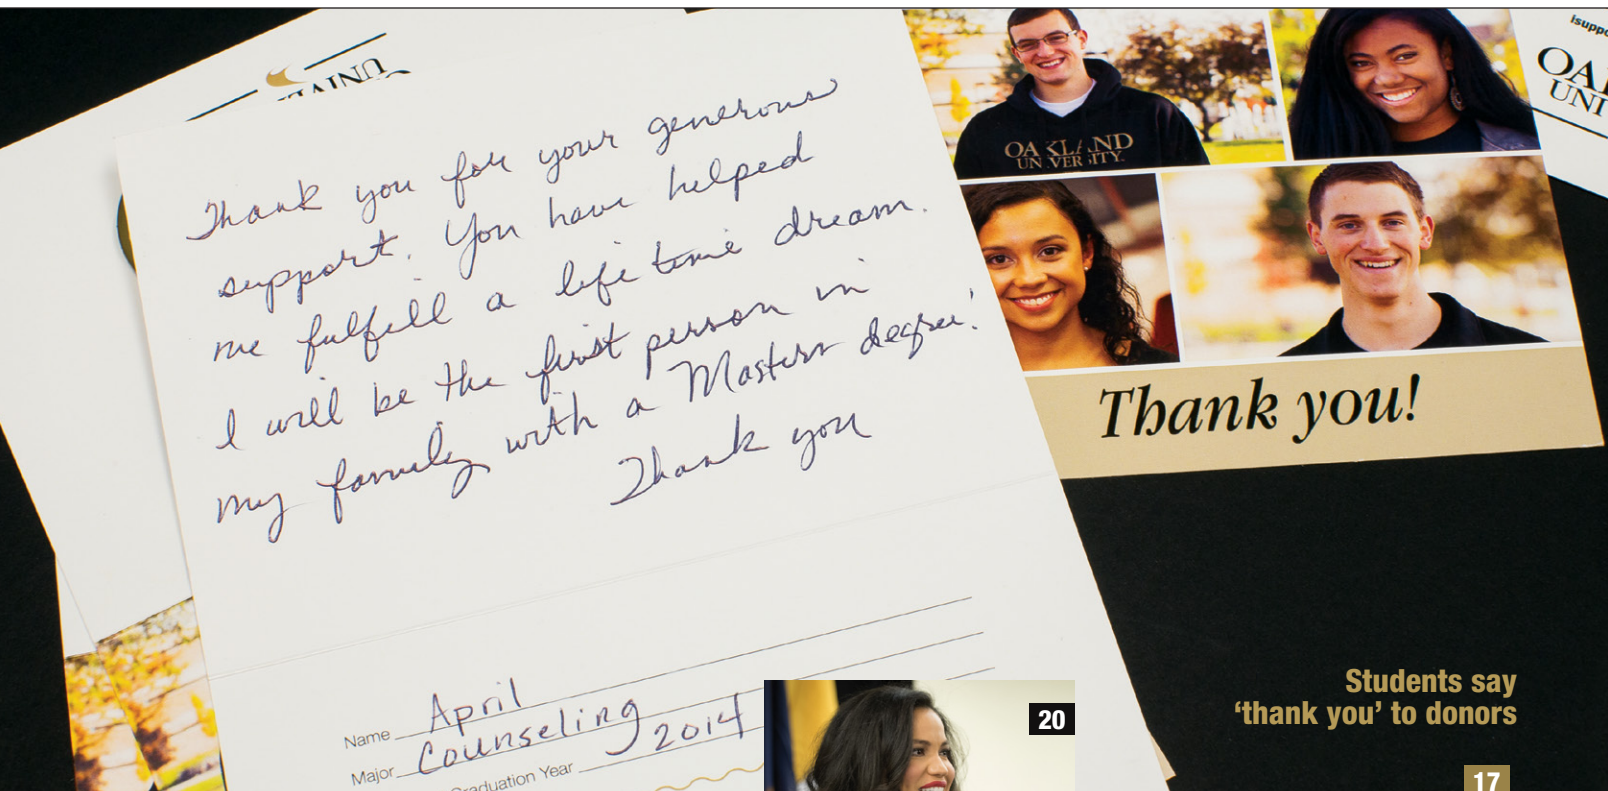 Thank you for your generous
support. You have helped
me fulfill a life time dream.
I will be the first person in
my family with a Masters degree!
Thank you
Name April
Major Counseling
Graduation Year 2014
OAKLAND
UNIVERSITY.
Thank you!
20
Students say
‘thank you’ to donors
17